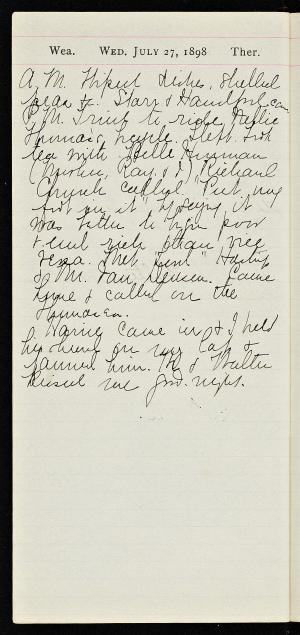 Wea. WED. JULY 27, 1898 Ther.
A.M. Wiped dishes, shelled
peas &c. Starr & Handford came
P.M. Went to ride, Nellie
Thomais, people. I left took
tea with Belle
(Mother, Ray, & I) Richard
Church called. "Put my
foot in it" by saying it
was better to be poor
& end rich than vice
versa. Met "him"
& M. Van Deusen. Came
home & called on the
came in & I held
his head on my lap &
fanned him. & Walter
kissed me good-night.